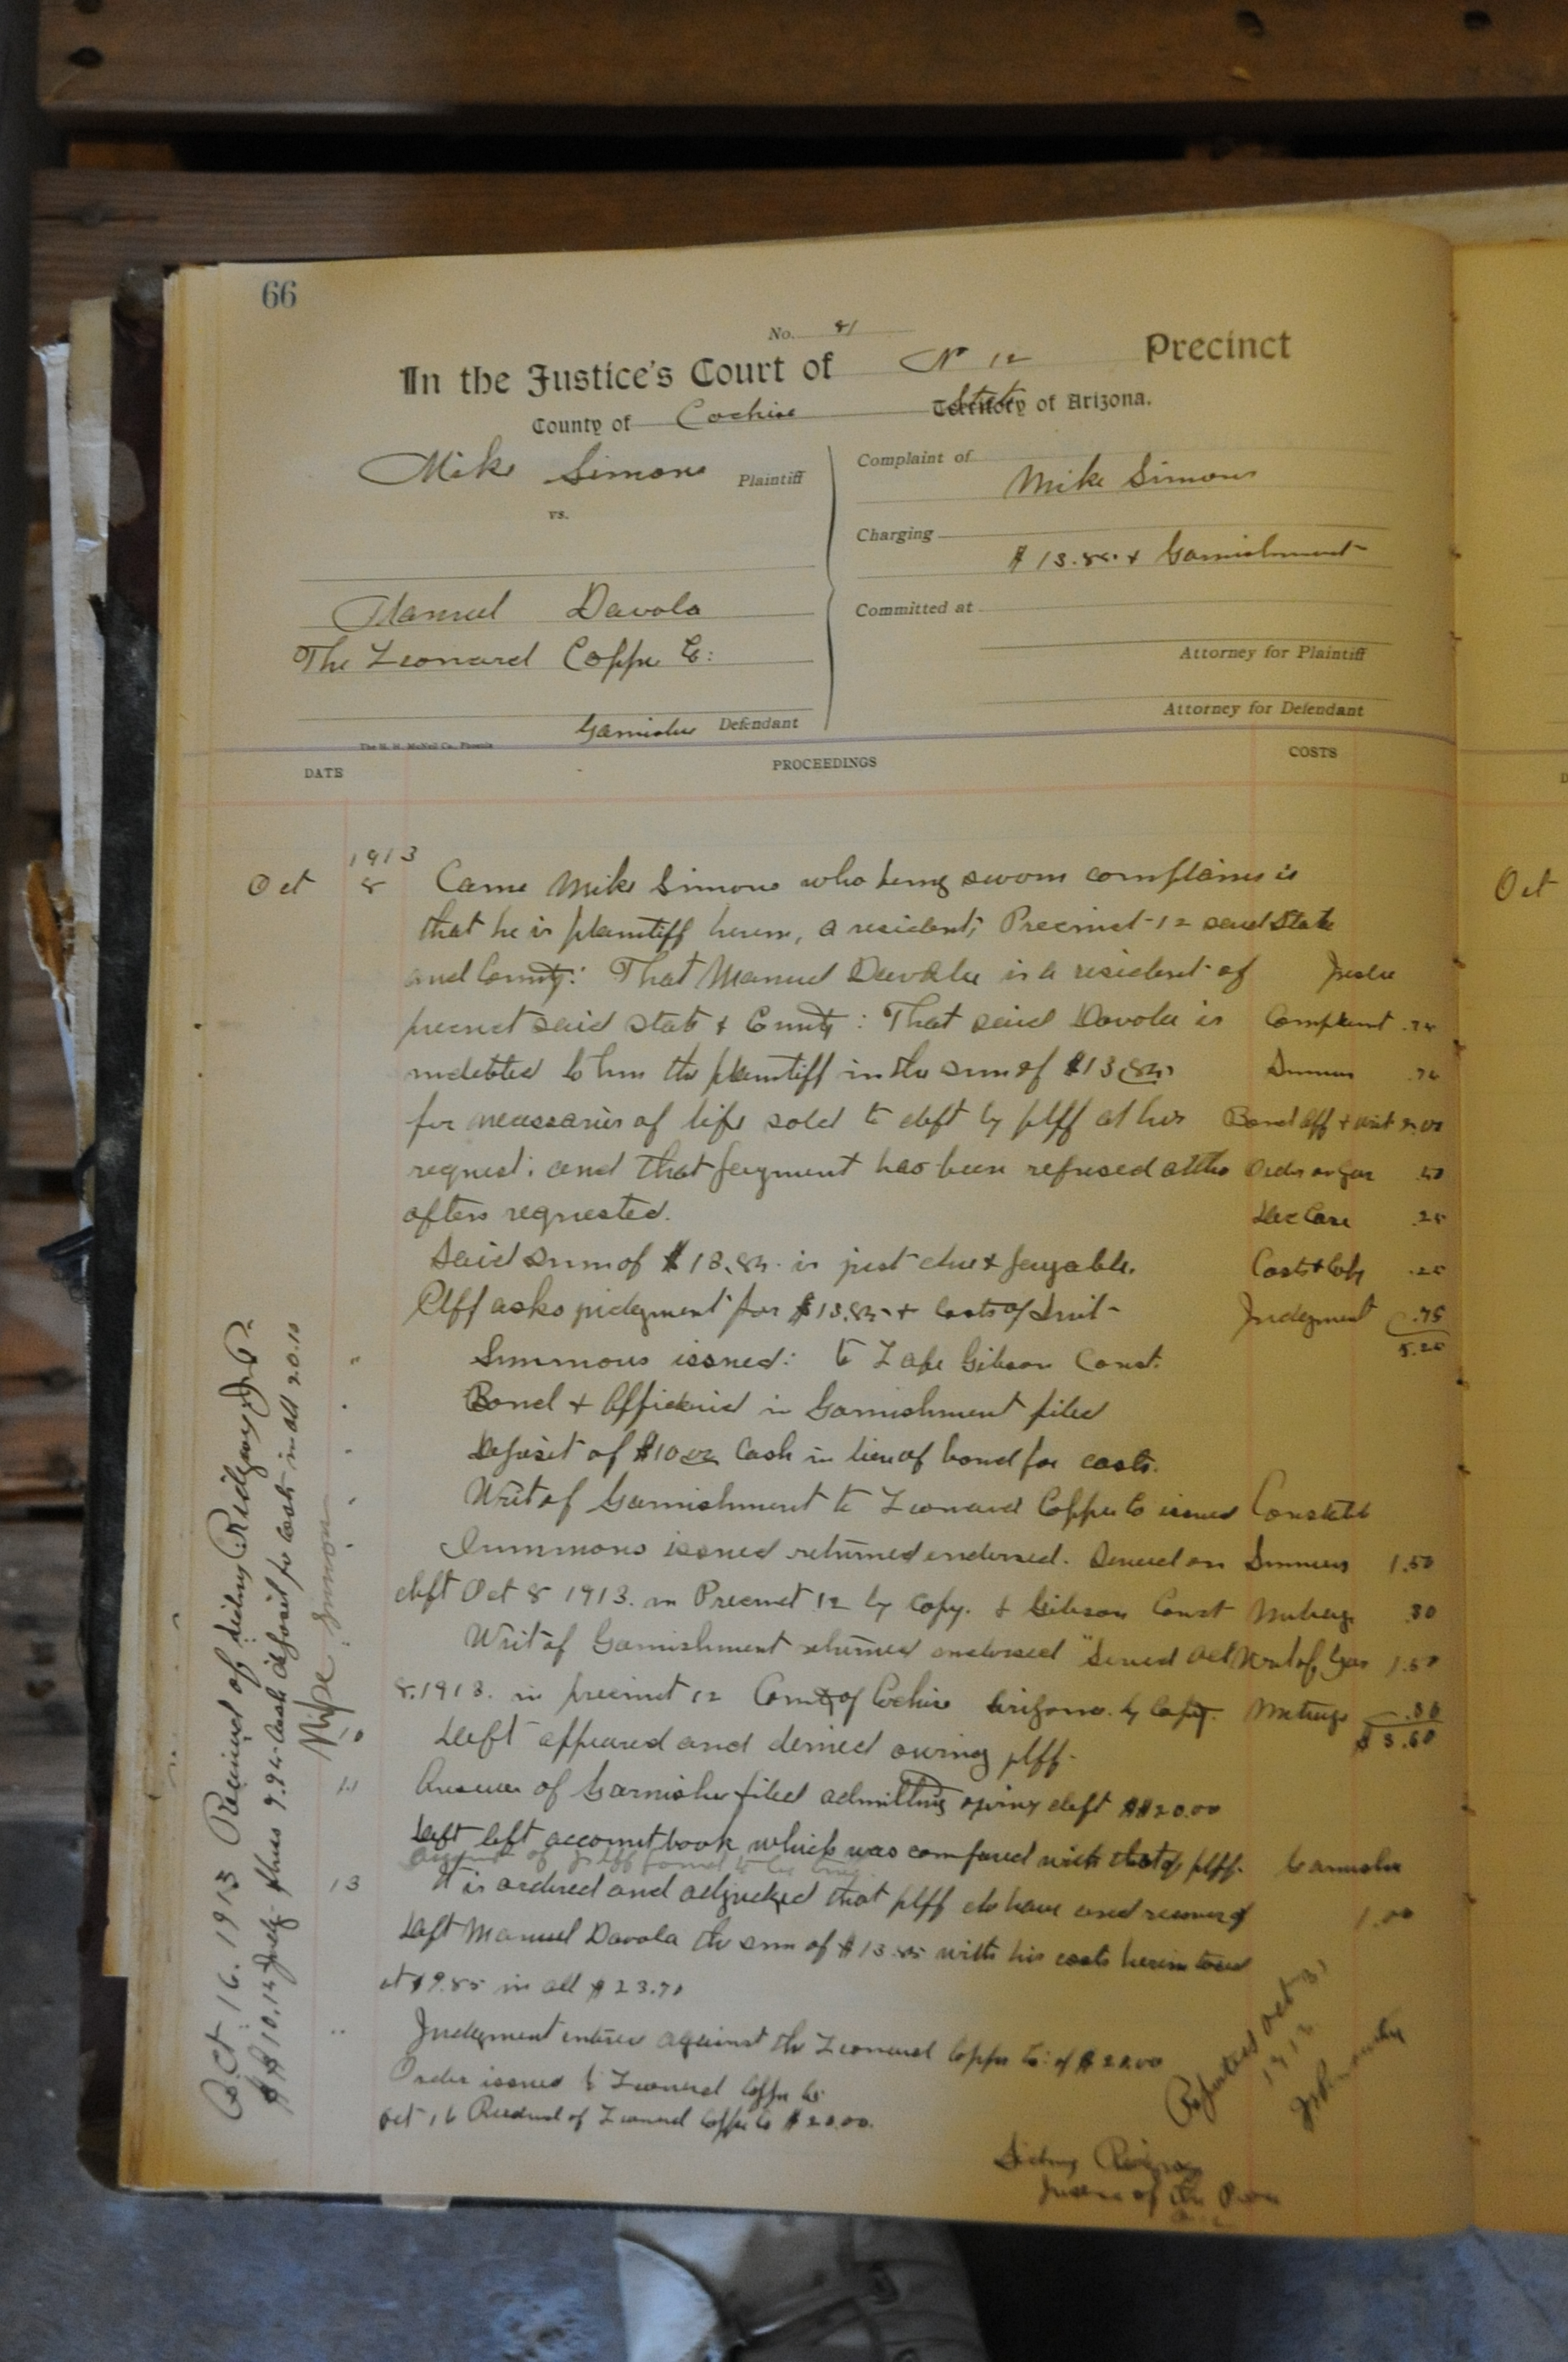 66
No. 81
In the Justice's Court of No 12 Precinct
County of Cochise State Territory of Arizona.
Mike Simons Plaintiff
vs.
Manuel Davola
The Leonard Copper Co:
Garnishee Defendant
Complaint of
Mike Simons
Charging
$13.85 + Garnishment
Committed at
Attorney for Plaintiff
Attorney for Defendant
The H. H. McNeil Co., Phoenix
DATE PROCEEDINGS COSTS
1913
Oct 8 Came Mike Simons who being sworn complains
that he is plaintiff herein, a resident, Precinct 12 said State
and County: That Manuel Davola is a resident of
precinct said state & County: That said Davola is Complaint .75
indebted to him the plaintiff in the sum of $13.85 Summons .25
for necessaries of life sold to deft by plff at his Bond aff + writ
request: and that payment has been refused altho Order on Gar .50
often requested. .25
Said sum of $13.85 is just due & payable. Costs + Cop .25
Plff asks judgment for $13.85 + Costs of Suit Judgment .75
Summons issued: to Gibson Const.
Bond + Affidavit in Garnishment filed
Deposit of $10.00 Cash in lieu of bond for costs.
Writ of Garnishment to Leonard Copper Co issued Constable
Summons issued returned endorsed. Served on Summons 1.50
deft Oct 8 1913. in Precinct 12 by copy. Gibson Const Mileage .30
Writ of Garnishment returned endorsed "Served Oct Writ of Gar 1.50
8. 1913. in precinct 12 County of Cochise Arizona. by Copy. Mileage .30
$3.60
10 Deft appeared and denied owing plff.
11 Answer of Garnishee filed admitting owing deft $20.00
Deft left account book which was compared with that of plff. Garnishee
account of plff found to be true
13 It is ordered and adjudged that plff do have and recover of 1.00
Deft Manuel Davola the sum of $13.85 with his costs herein taxed
at $9.85 in all $23.70
Judgment entered against the Leonard Copper Co: of $20.00
Order issued to Leonard Copper Co
Oct 16 Received of Leonard Copper Co $20.00.
Sidney Ridgway
Justice of the Peace
Reported Oct 31
1913
Oct 16. 1913 Received of Sidney Ridgway J.P.
$10.14 Judg. plus 9.96 Cash deposit for Costs in all 20.10
Mike Simon
Oct